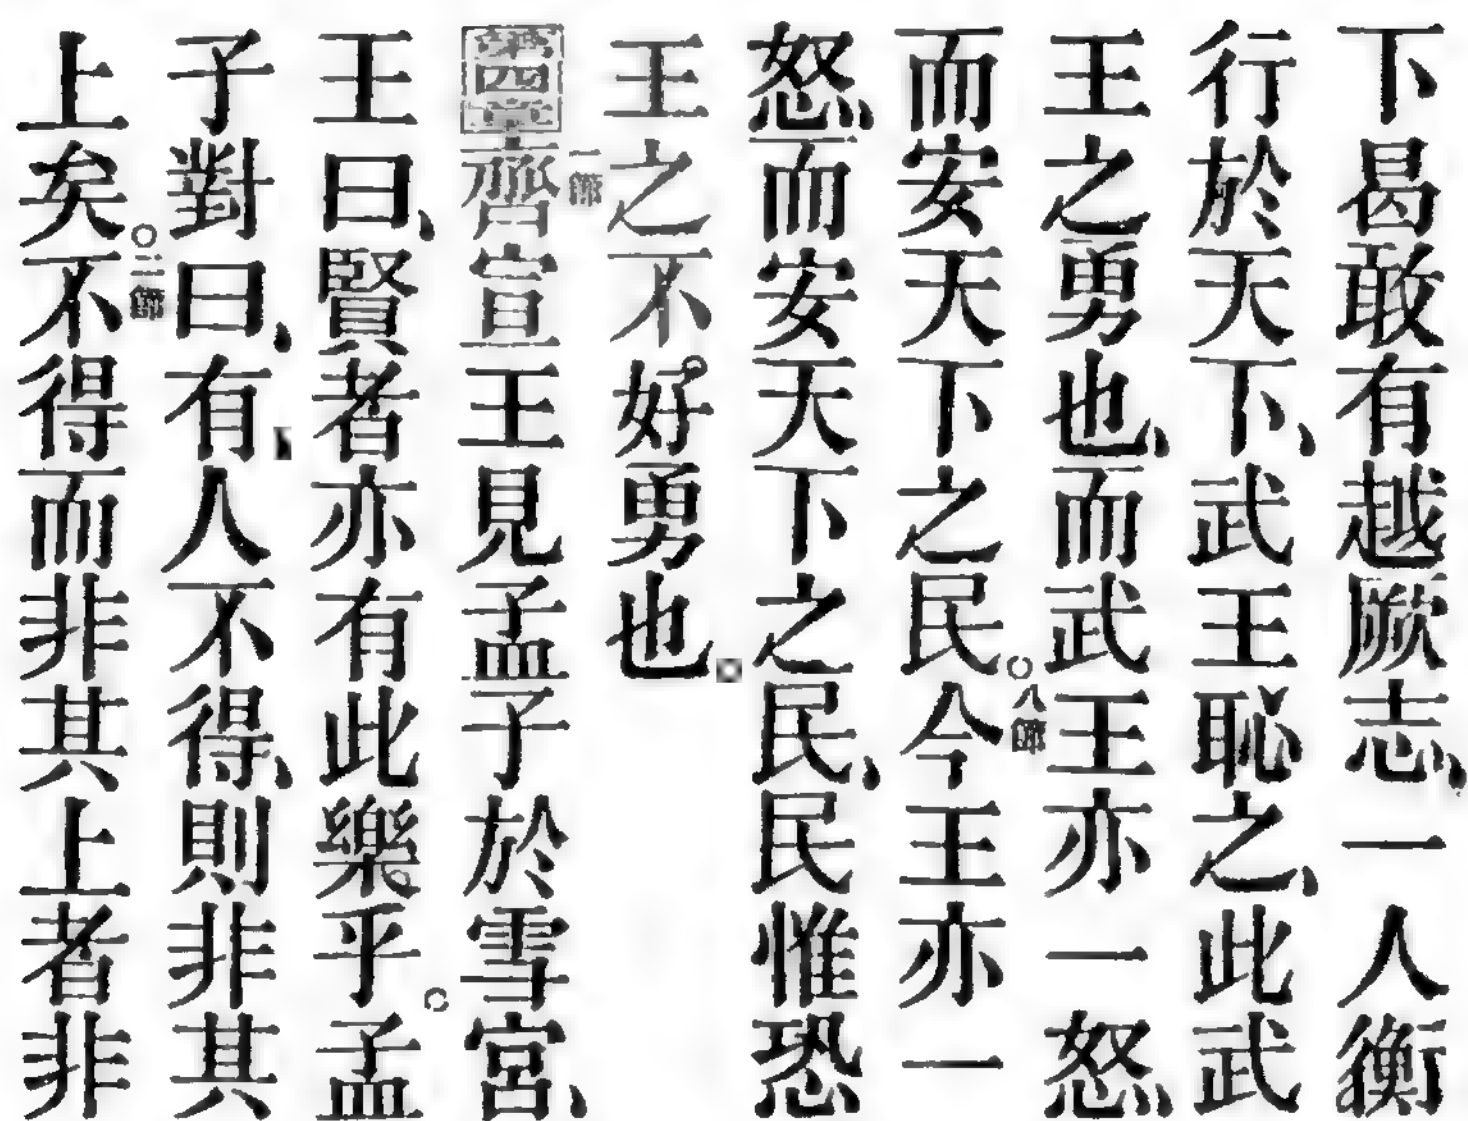 下曷敢有越厥志、一人衡
行於天下、武王恥之、此武
王之勇也、而武王亦一怒、
而安天下之民○八節今王亦一
怒、而安天下之民、民惟恐
王之不好勇也
第四章一節齊宣王見孟子於雪宮、
王曰、賢者亦有此樂乎○孟
子對曰、有、人不得、則非其
上矣○二節不得而非其上者非